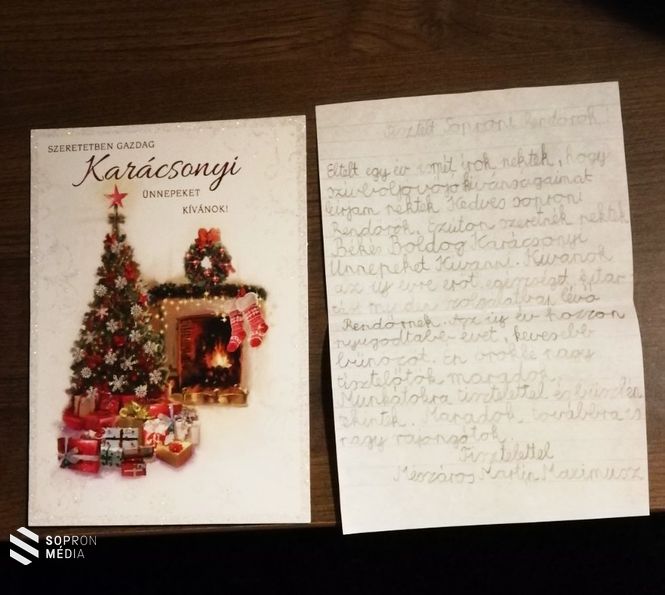 SZERETETBEN GAZDAG
Karácsonyi
ÜNNEPEKET
KÍVÁNOK!
Tisztelt Soproni Rendőrök!
Eltelt egy év ismét írok nektek, hogy
szívböljövojokívánságaimat
leirjam nektek Kedves soproni
Rendorok. Ezúton szeretnék nektek
Békés Boldog Karácsonyi
Ünnepeket Kivanni. Kivanok
az új évre erőt egeszséget, kitar
tást minden szolgálatban lévo
Rendornek. Az új év hozzon
nyugodtabb évet, kevesebb
bünozot. Én örökké nagy
tisztelőtök maradok.
Munkátokra tisztelettel és büszkén
tekintek. Maradok továbbra is
nagy rajongótok
Tisztelettel
Mészáros Martin Maximusz
SOPRON
MÉDIA